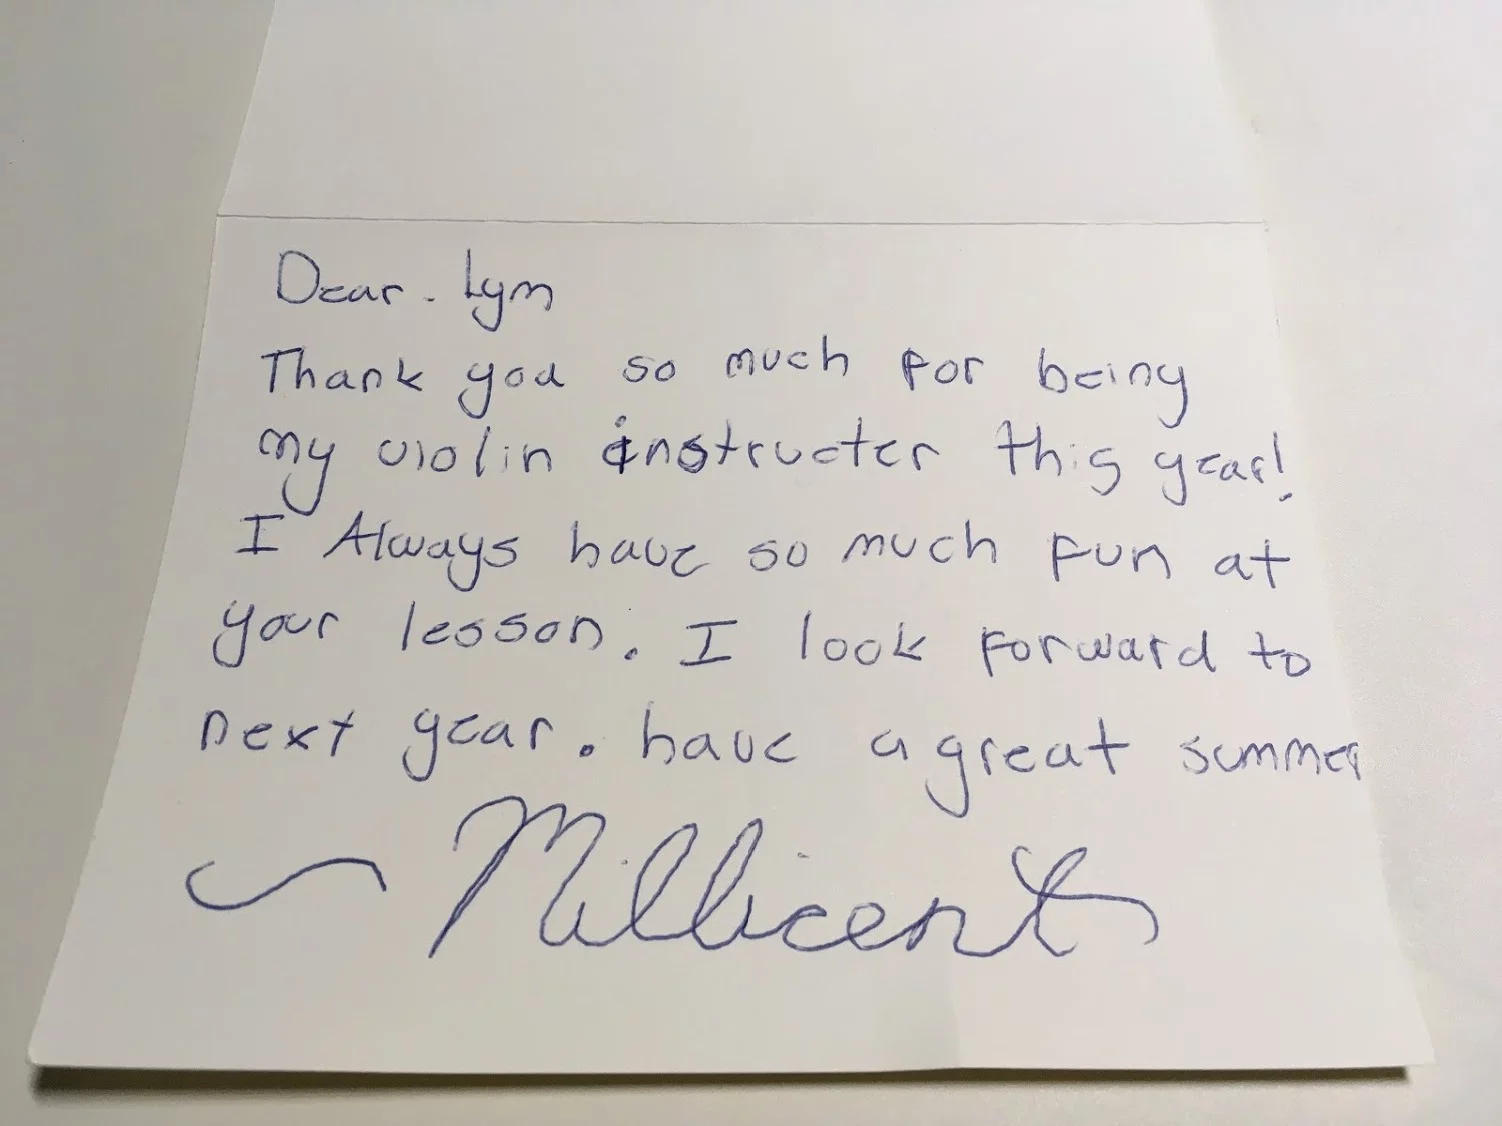 Dear. Lym
Thank you so much for being
my violin instructer this year!
I Always have so much fun at
your lesson. I look forward to
next year. have a great summer
~ Millicent